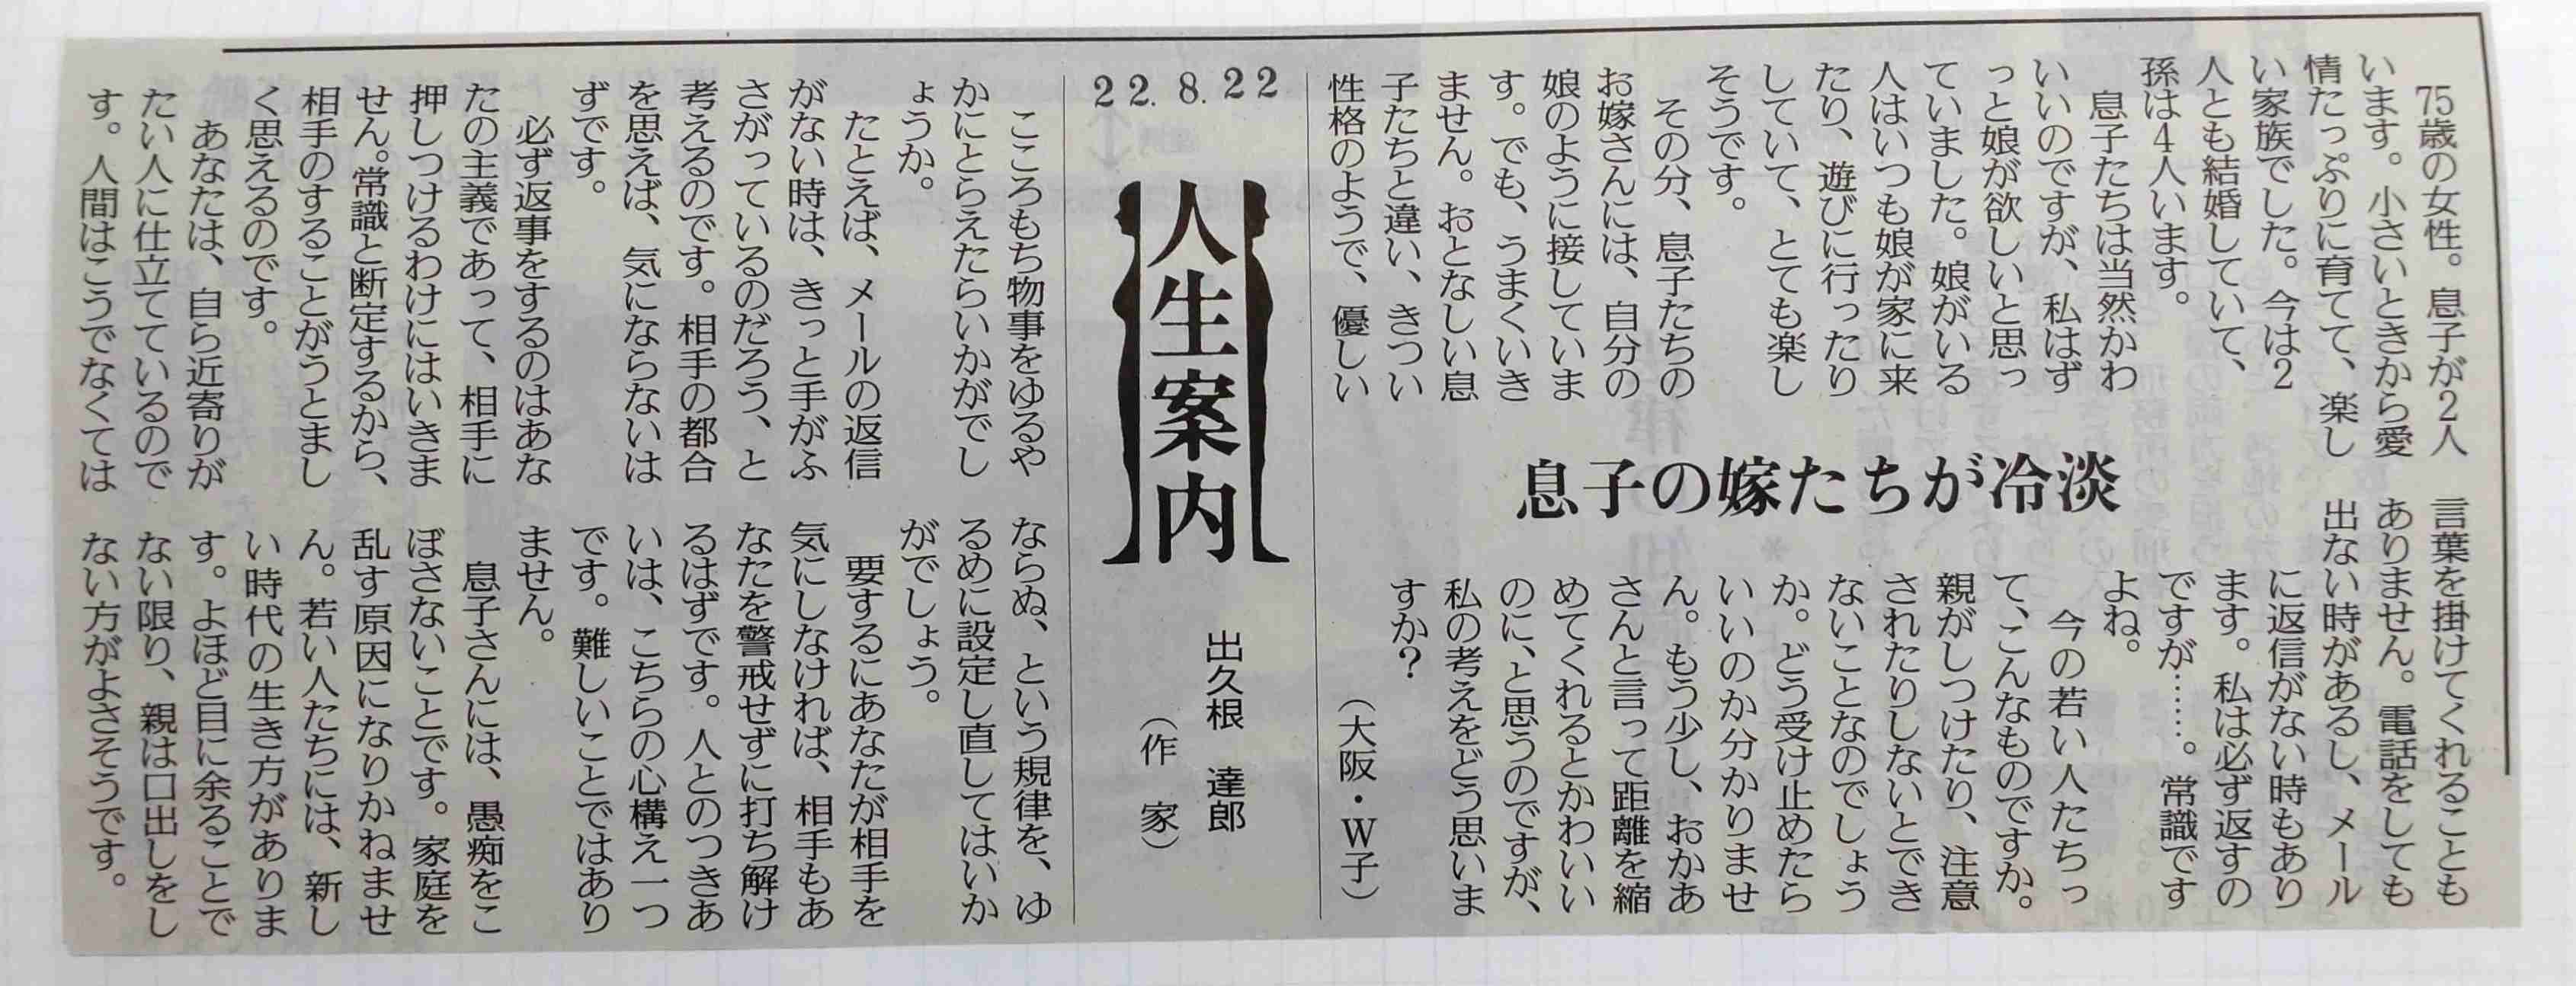 息子の嫁たちが冷淡
75歳の女性。息子が2人
います。小さいときから愛
情たっぷりに育てて、楽し
い家族でした。今は2
人とも結婚していて、
孫は4人います。
息子たちは当然かわ
いいのですが、私はず
っと娘が欲しいと思っ
ていました。娘がいる
人はいつも娘が家に来
たり、遊びに行ったり
していて、とても楽し
そうです。
その分、息子たちの
お嫁さんには、自分の
娘のように接していま
す。でも、うまくいき
ません。おとなしい息
子たちと違い、きつい
性格のようで、優しい
言葉を掛けてくれることも
ありません。電話をしても
出ない時があるし、メール
に返信がない時もあり
ます。私は必ず返すの
ですが……。常識です
よね。
今の若い人たちっ
て、こんなものですか。
親がしつけたり、注意
されたりしないとでき
ないことなのでしょう
か。どう受け止めたら
いいのか分かりませ
ん。もう少し、おかあ
さんと言って距離を縮
めてくれるとかわいい
のに、と思うのですが、
私の考えをどう思いま
すか？
（大阪・W子）
22.8.22
人生案内
出久根 達郎
（作 家）
こころもち物事をゆるや
かにとらえたらいかがでし
ょうか。
たとえば、メールの返信
がない時は、きっと手がふ
さがっているのだろう、と
考えるのです。相手の都合
を思えば、気にならないは
ずです。
必ず返事をするのはあな
たの主義であって、相手に
押しつけるわけにはいきま
せん。常識と断定するから、
相手のすることがうとまし
く思えるのです。
あなたは、自ら近寄りが
たい人に仕立てているので
す。人間はこうでなくては
ならぬ、という規律を、ゆ
るめに設定し直してはいか
がでしょう。
要するにあなたが相手を
気にしなければ、相手もあ
なたを警戒せずに打ち解け
るはずです。人とのつきあ
いは、こちらの心構え一つ
です。難しいことではあり
ません。
息子さんには、愚痴をこ
ぼさないことです。家庭を
乱す原因になりかねませ
ん。若い人たちには、新し
い時代の生き方がありま
す。よほど目に余ることで
ない限り、親は口出しをし
ない方がよさそうです。